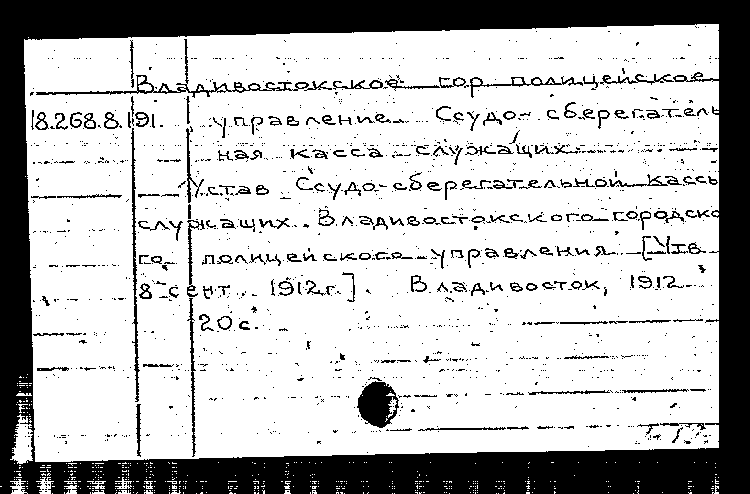 Владивостокское гор полицейское
18.268.8.191. управление. Ссудо-сберегатель
ная касса служащих.
Устав Ссудо-сберегательной кассы
служащих Владивостокского городско
го полицейского управления [Утв
8 сент. 1912г.]. Владивосток, 1912
20с.